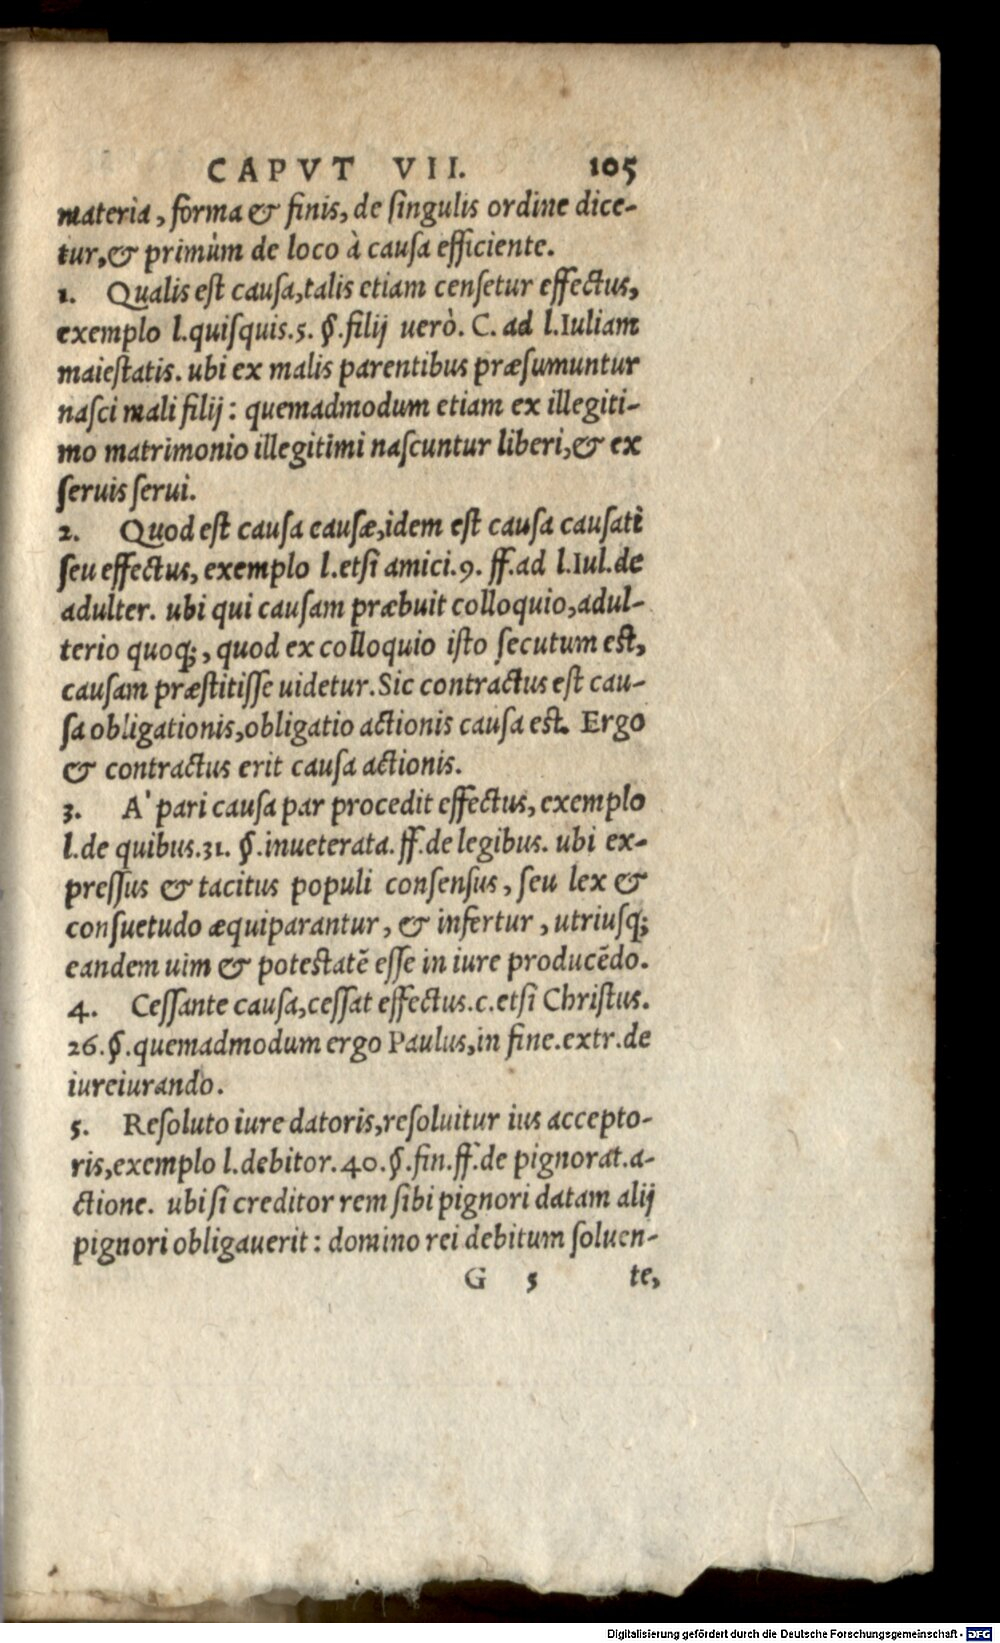 CAPVT VII. 105
materia, forma & finis, de ſingulis ordine dice-
tur, & primùm de loco à cauſa efficiente.
1. Qualis eſt cauſa, talis etiam cenſetur effectus,
exemplo l. quiſquis. 5. §. filij uerò. C. ad l. Iuliam
maieſtatis. ubi ex malis parentibus præſumuntur
naſci mali filij: quemadmodum etiam ex illegiti-
mo matrimonio illegitimi naſcuntur liberi, & ex
ſeruis ſerui.
2. Quod eſt cauſa cauſæ, idem eſt cauſa cauſati
ſeu effectus, exemplo l. etſi amici. 9. ff. ad l. Iul. de
adulter. ubi qui cauſam præbuit colloquio, adul-
terio quoq;, quod ex colloquio iſto ſecutum eſt,
cauſam præſtitiſſe uidetur. Sic contractus eſt cau-
ſa obligationis, obligatio actionis cauſa eſt. Ergo
& contractus erit cauſa actionis.
3. A' pari cauſa par procedit effectus, exemplo
l. de quibus. 31. §. inueterata. ff. de legibus. ubi ex-
preſſus & tacitus populi conſenſus, ſeu lex &
conſuetudo æquiparantur, & infertur, utriuſq;
eandem uim & poteſtatē eſſe in iure producēdo.
4. Ceſſante cauſa, ceſſat effectus. c. etſi Chriſtus.
26. §. quemadmodum ergo Paulus, in fine. extr. de
iureiurando.
5. Reſoluto iure datoris, reſoluitur ius accepto-
ris, exemplo l. debitor. 40. §. fin. ff. de pignorat. a-
ctione. ubi ſi creditor rem ſibi pignori datam alij
pignori obligauerit: domino rei debitum ſoluen-
G 5 te,
Digitalisierung gefördert durch die Deutsche Forschungsgemeinschaft - DFG